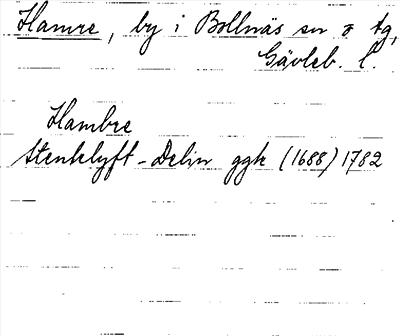 Hamre, by i Bollnäs sn o tg,
Gävleb. l.
Hambre
Stenklyft-Delin ggk (1688) 1782